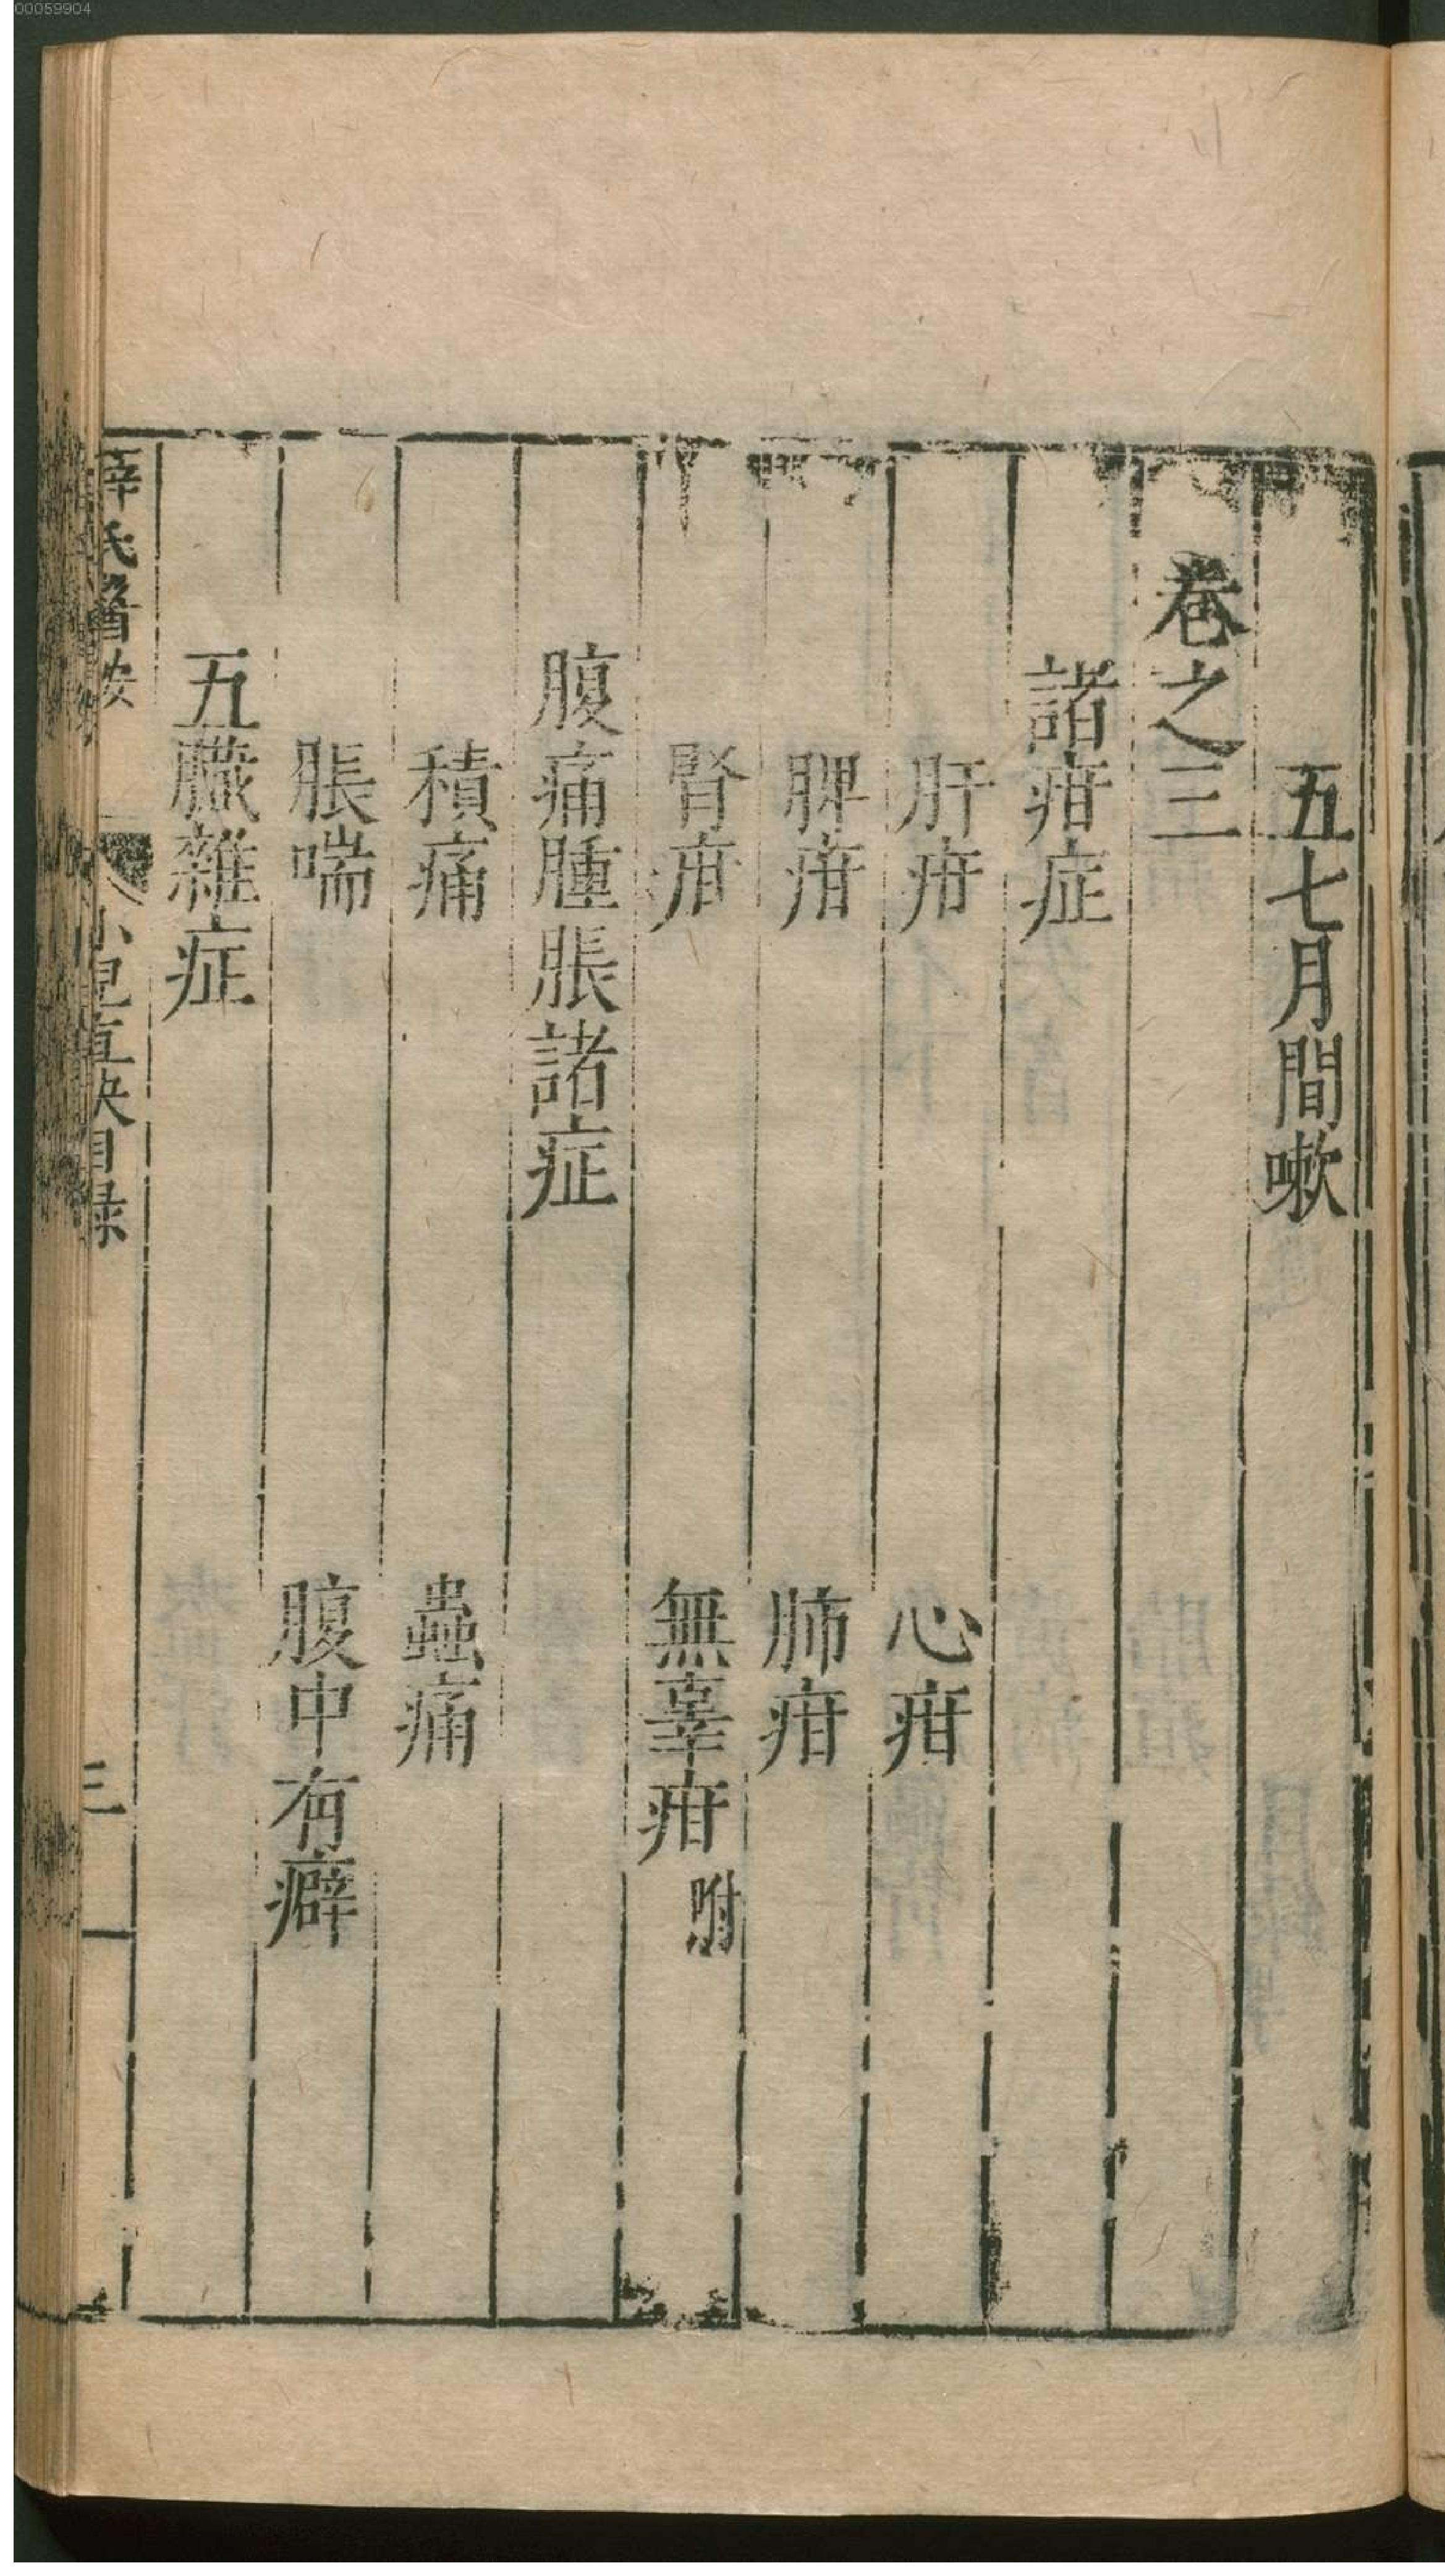 00059904
五七月間嗽
卷之三
諸疳症
肝疳　心疳
脾疳　肺疳
腎疳　無辜疳附
腹痛腫脹諸症
積痛　蟲痛
脹喘　腹中有癖
五臟雜症
薛氏醫按　小兒直決目録　三